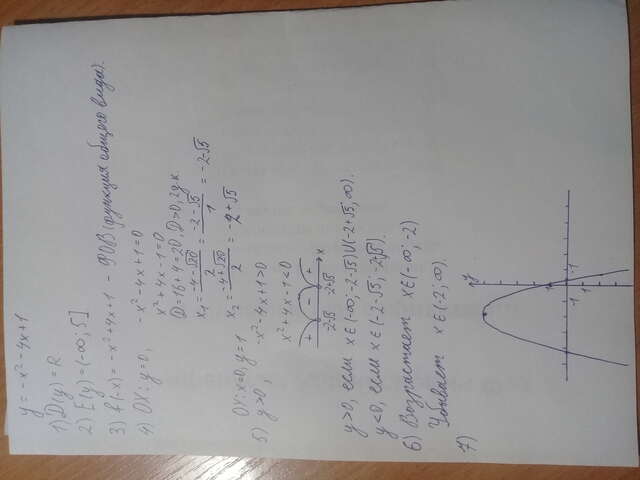 y = -x² - 4x + 1
1) D(y) = R
2) E(y) = (-∞; 5]
3) f(-x) = -x² + 4x + 1 - ФОВ (функция общего вида).
4) OX: y = 0, -x² - 4x + 1 = 0
x² + 4x - 1 = 0
D = 16 + 4 = 20, D > 0, 2 д.к.
x₁ = (-4 - √20)/2 = (-2 - √5)/1 = -2 - √5
x₂ = (-4 + √20)/2 = -2 + √5
OY: x = 0, y = 1
5) y > 0, -x² - 4x + 1 > 0
x² + 4x - 1 < 0
+ - +
-2-√5 -2+√5 x
y > 0, если x ∈ (-∞; -2-√5) ∪ (-2+√5; ∞).
y < 0, если x ∈ (-2-√5; -2+√5).
6) Возрастает x ∈ (-∞; -2)
Убывает x ∈ (-2; ∞).
7)
y
1
-1
-1